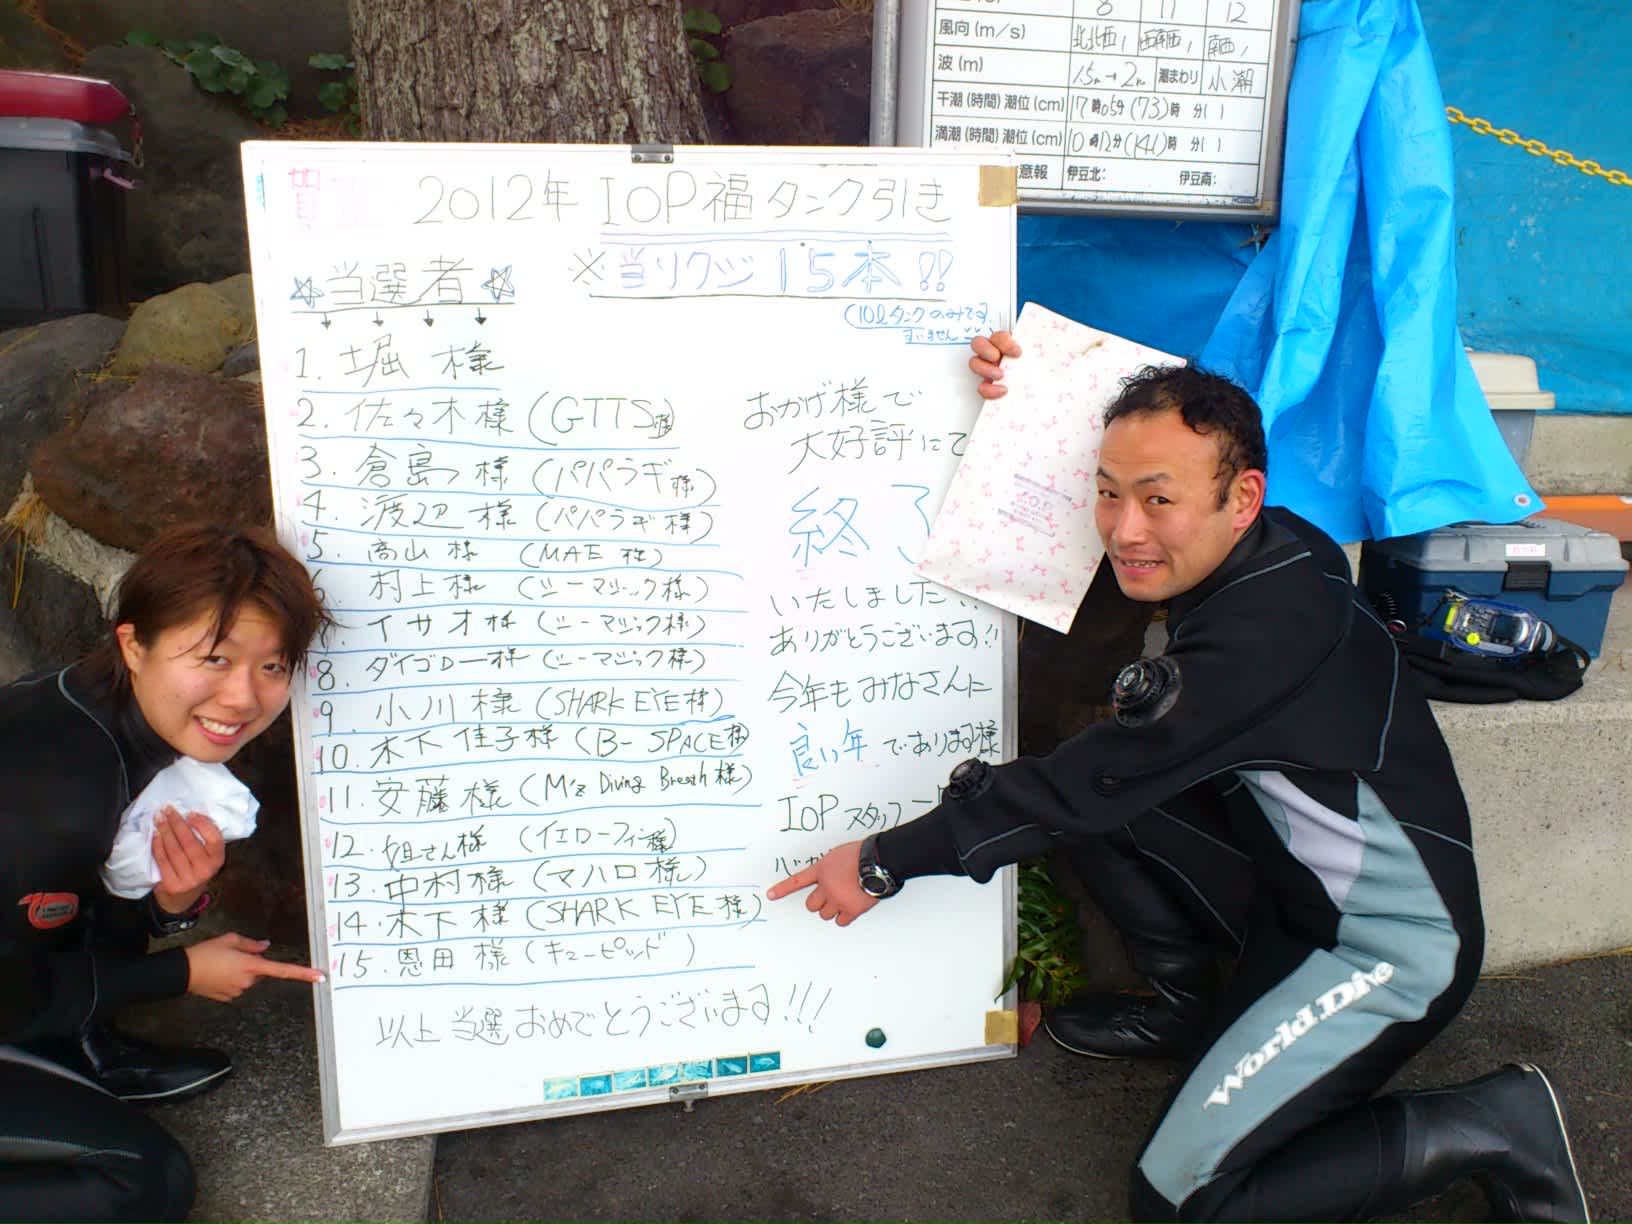 8 11 12
風向(m/s) 北北西, 西南西, 南西,
波(m) 1.5m→2m 潮まわり 小潮
干潮(時間)潮位(cm) 17時05分(73) 時 分( )
満潮(時間)潮位(cm) 10時12分(141) 時 分( )
意報 伊豆北: 伊豆南:
賀正 2012年 IOP福タンク引き
※当りクジ15本!!
(10ℓタンクのみです
すいません
☆当選者☆
↓ ↓ ↓ ↓
1. 堀 様
2. 佐々木様(GTTS様)
3. 倉島様(パパラギ様)
4. 渡辺様(パパラギ様)
5. 高山様 (MAE 様)
6. 村上様 (シーマジック様)
7. イサオ様 (シーマジック様)
8. ダイゴロー様 (シーマジック様)
9. 小川様 (SHARK EYE様)
10. 木下佳子様 (B-SPACE様)
11. 安藤様 (M'z Diving Breath様)
12. 姐さん様 (イエローフィン様)
13. 中村様 (マハロ様)
14. 木下様 (SHARK EYE様)
15. 恩田様 (キューピッド )
以上当選おめでとうございます!!!
おかげ様で
大好評にて
終了
いたしました!!
ありがとうございます!!
今年もみなさんに
良い年であります様
IOPスタッフ一同
World Dive